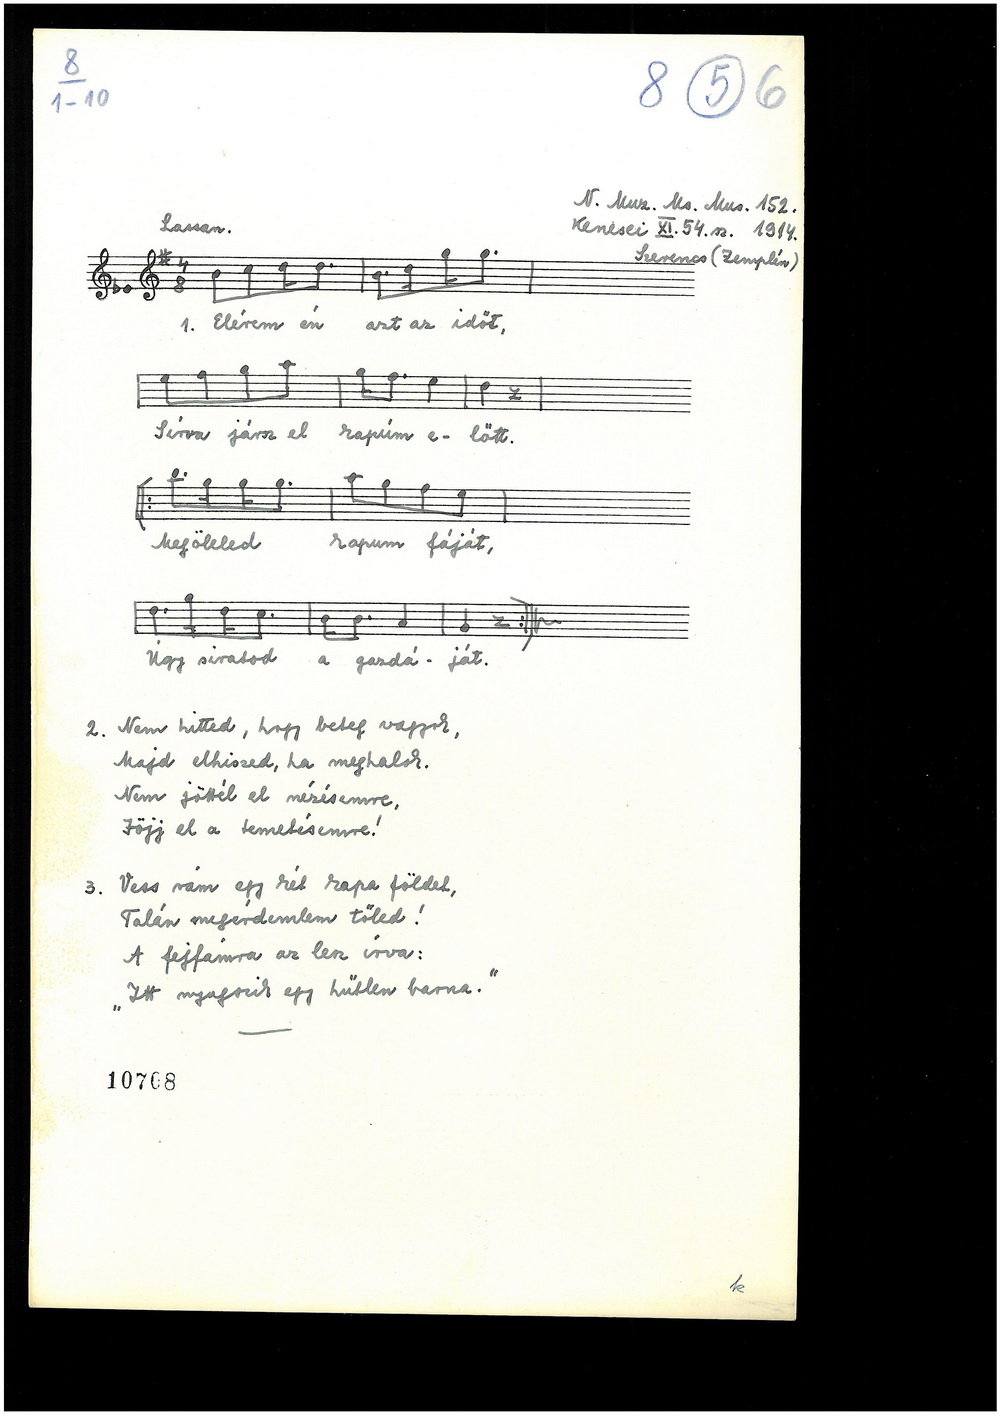 8
1-10
8 5 6
N. Muz. Ms. Mus. 152.
Kenesei XI. 54. sz. 1914.
Szerencs (Zemplén)
Lassan.
4
8
1. Elérem én azt az időt,
Sírva jársz el kapúm e- lőtt.
Megöleled kapum fáját,
Úgy siratod a gazdá- ját.
2. Nem hitted, hogy beteg vagyok,
Majd elhiszed, ha meghalok.
Nem jöttél el nézésemre,
Jöjj el a temetésemre!
3. Vess rám egy két kapa földet,
Talán megérdemlem tőled!
A fejfámra az lesz írva:
„Itt nyugszik egy hűtlen barna."
10708
k